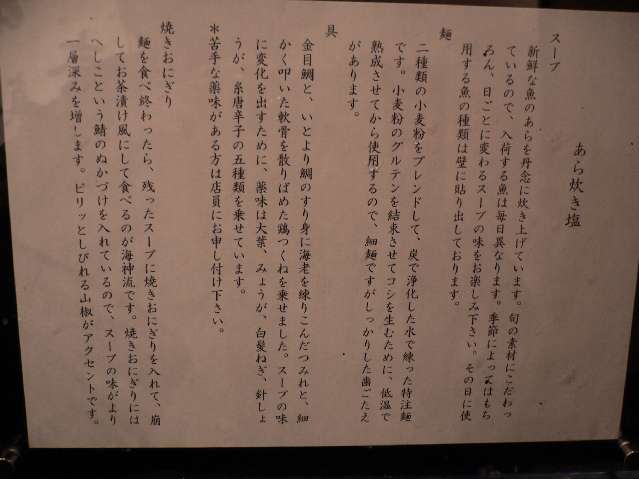 あら炊き塩
スープ
新鮮な魚のあらを丹念に炊き上げています。旬の素材にこだわっ
ているので、入荷する魚は毎日異なります。季節によってはもち
ろん、日ごとに変わるスープの味をお楽しみ下さい。その日に使
用する魚の種類は壁に貼り出しております。
麺
二種類の小麦粉をブレンドして、炭で浄化した水で練った特注麺
です。小麦粉のグルテンを結束させてコシを生むために、低温で
熟成させてから使用するので、細麺ですがしっかりした歯ごたえ
があります。
具
金目鯛と、いとより鯛のすり身に海老を練りこんだつみれと、細
かく叩いた軟骨を散りばめた鶏つくねを乗せました。スープの味
に変化を出すために、薬味は大葉、みょうが、白髪ねぎ、針しょ
うが、糸唐辛子の五種類を乗せています。
*苦手な薬味がある方は店員にお申し付け下さい。
焼きおにぎり
麺を食べ終わったら、残ったスープに焼きおにぎりを入れて、崩
してお茶漬け風にして食べるのが海神流です。焼きおにぎりには
へしこという鯖のぬかづけを入れているので、スープの味がより
一層深みを増します。ピリッとしびれる山椒がアクセントです。